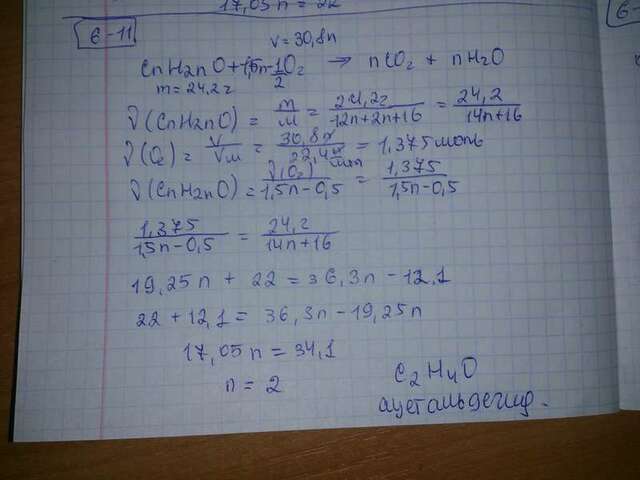 17,05n = 22
6-11
V = 30,8л
CnH2nO + 1,5n-1O2/2 → nCO2 + nH2O
m = 24,2г
ν(CnH2nO) = m/M = 24,2г/12n+2n+16 = 24,2/14n+16
ν(O2) = V/Vм = 30,8л/22,4л/моль = 1,375моль
ν(CnH2nO) = ν(O2)/1,5n-0,5 = 1,375/1,5n-0,5
1,375/1,5n-0,5 = 24,2/14n+16
19,25n + 22 = 36,3n - 12,1
22 + 12,1 = 36,3n - 19,25n
17,05n = 34,1
n = 2
C2H4O
ацетальдегид.